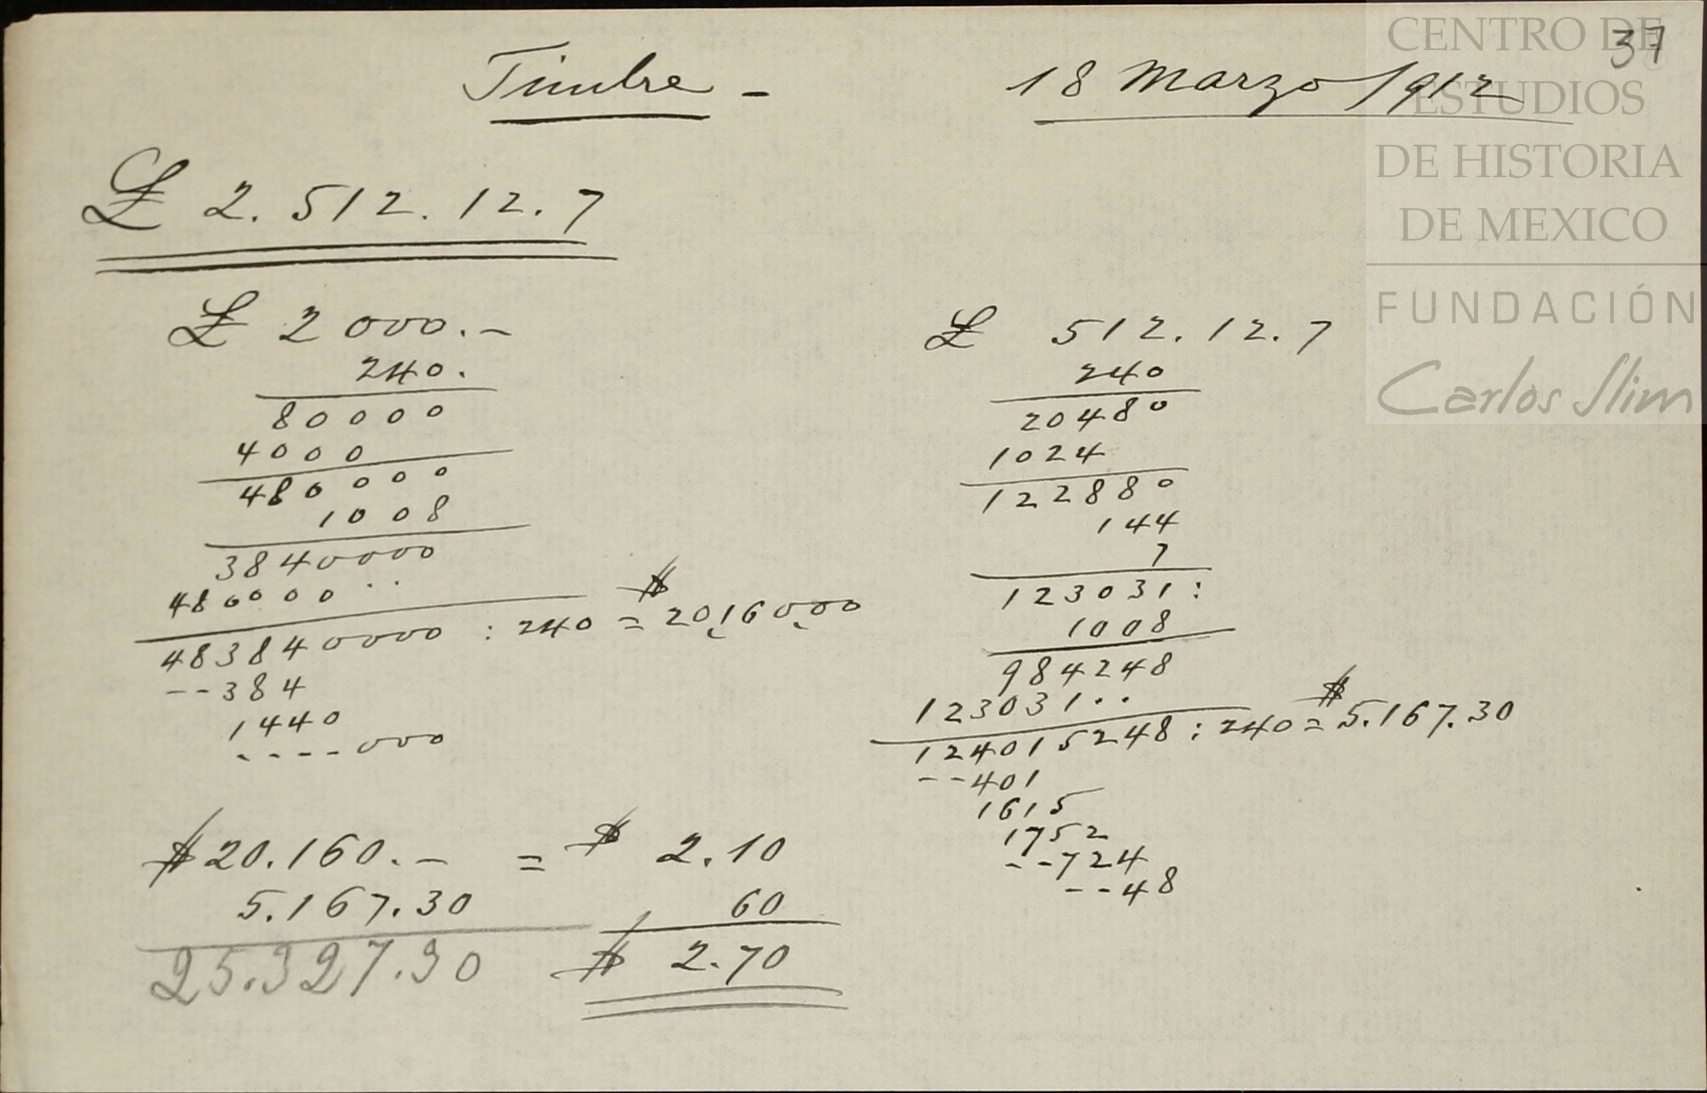 37
Timbre - 18 Marzo 1912
£ 2.512.12.7
£ 2000.-
240.
80000
4000
480000
1008
3840000
480000..
483840000 : 240 = $ 2016000
--384
1440
----000
£ 512.12.7
240
20480
1024
122880
144
7
123031:
1008
984248
123031..
124015248 : 240 = $ 5.167.30
--401
1615
1752
--724
--48
$ 20.160.- = $ 2.10
5.167.30 60
25.327.30 $ 2.70
CENTRO DE
ESTUDIOS
DE HISTORIA
DE MEXICO
FUNDACIÓN
Carlos Slim